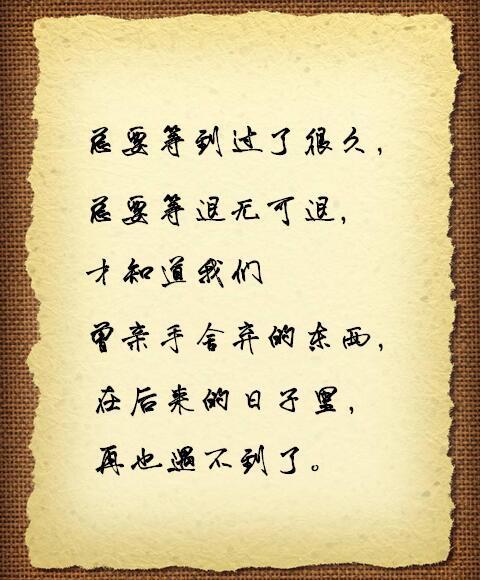 总要等到过了很久，
总要等退无可退，
才知道我们
曾亲手舍弃的东西，
在后来的日子里，
再也遇不到了。